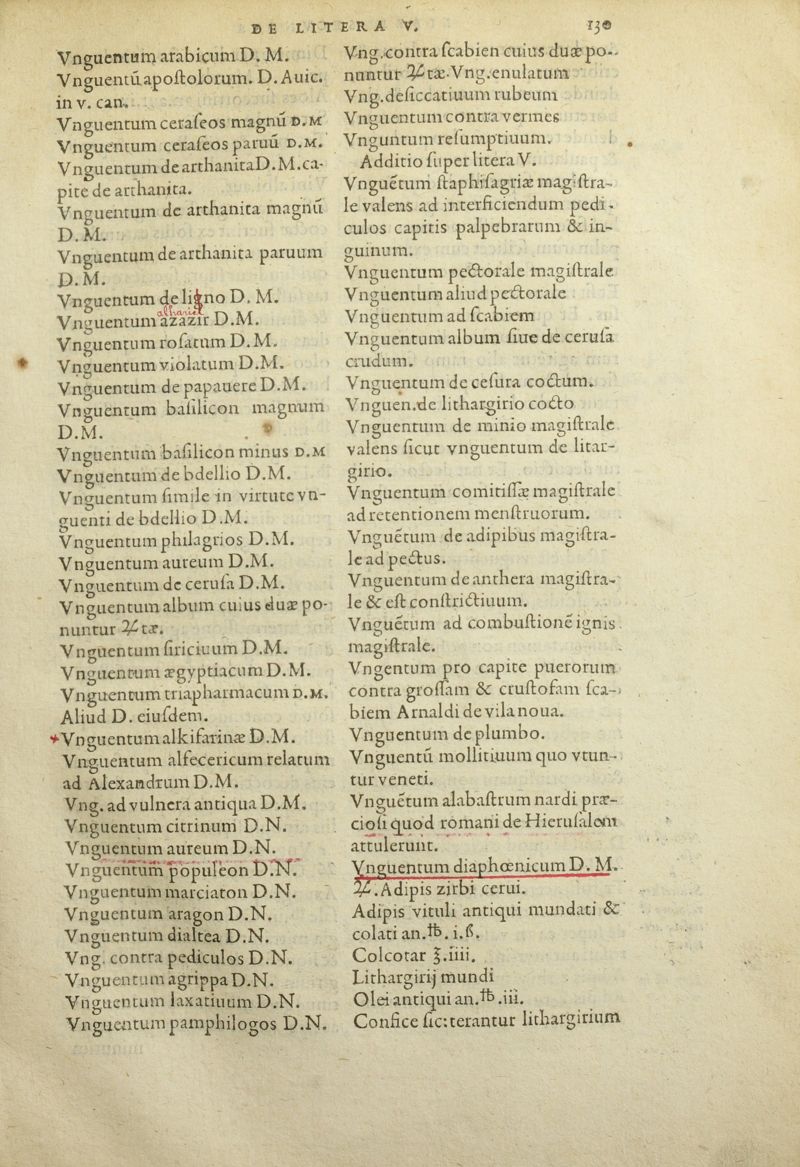 DE LITERA V. 130
Vnguentum arabicum D. M.
Vnguentū apoſtolorum. D. Auic.
in v. can.
Vnguentum ceraſeos magnū D.M
Vnguentum ceraſeos paruū D.M.
Vnguentum de arthanita D.M. ca-
pite de arthanita.
Vnguentum de arthanita magnū
D.M.
Vnguentum de arthanita paruum
D.M.
Vnguentum de ligno D. M.
Vnguentum azazir D.M.
Vnguentum roſatum D.M.
Vnguentum violatum D.M.
Vnguentum de papauere D.M.
Vnguentum baſilicon magnum
D.M.
Vnguentum baſilicon minus D.M
Vnguentum de bdellio D.M.
Vnguentum ſimile in virtute vn-
guenti de bdellio D.M.
Vnguentum philagrios D.M.
Vnguentum aureum D.M.
Vnguentum de ceruſa D.M.
Vnguentum album cuius duæ po-
nuntur ℞tæ.
Vnguentum ſiriciuum D.M.
Vnguentum ægyptiacum D.M.
Vnguentum triapharmacum D.M.
Aliud D. eiuſdem.
Vnguentum alkifarinæ D.M.
Vnguentum alfecericum relatum
ad Alexandrum D.M.
Vng. ad vulnera antiqua D.M.
Vnguentum citrinum D.N.
Vnguentum aureum D.N.
Vnguentum populeon D.N.
Vnguentum marciaton D.N.
Vnguentum aragon D.N.
Vnguentum dialtea D.N.
Vng. contra pediculos D.N.
Vnguentum agrippa D.N.
Vnguentum laxatiuum D.N.
Vnguentum pamphilogos D.N.
Vng. contra ſcabien cuius duæ po-
nuntur ℞tæ. Vng. enulatum
Vng. deſiccatiuum rubeum
Vnguentum contra vermes
Vnguntum reſumptiuum.
Additio ſuper litera V.
Vnguētum ſtaphiſagriæ magiſtra-
le valens ad interficiendum pedi-
culos capitis palpebrarum & in-
guinum.
Vnguentum pectorale magiſtrale
Vnguentum aliud pectorale
Vnguentum ad ſcabiem
Vnguentum album ſiue de ceruſa
crudum.
Vnguentum de ceſura coctum.
Vnguen. de lithargirio cocto
Vnguentum de minio magiſtrale
valens ſicut vnguentum de litar-
girio.
Vnguentum comitiſſæ magiſtrale
ad retentionem menſtruorum.
Vnguētum de adipibus magiſtra-
le ad pectus.
Vnguentum de anthera magiſtra-
le & eſt conſtrictiuum.
Vnguētum ad combuſtionē ignis
magiſtrale.
Vngentum pro capite puerorum
contra groſſam & cruſtoſam ſca-
biem Arnaldi de vilanoua.
Vnguentum de plumbo.
Vnguentū mollitiuum quo vtun-
tur veneti.
Vnguētum alabaſtrum nardi præ-
cioſi quod romani de Hieruſalem
attulerunt.
Vnguentum diaphœnicum D. M.
℞. Adipis zirbi cerui.
Adipis vituli antiqui mundati &
colati an. ℔. i. ß.
Colcotar ℥. iiii.
Lithargirij mundi
Olei antiqui an. ℔. iii.
Confice ſic: terantur lithargirium